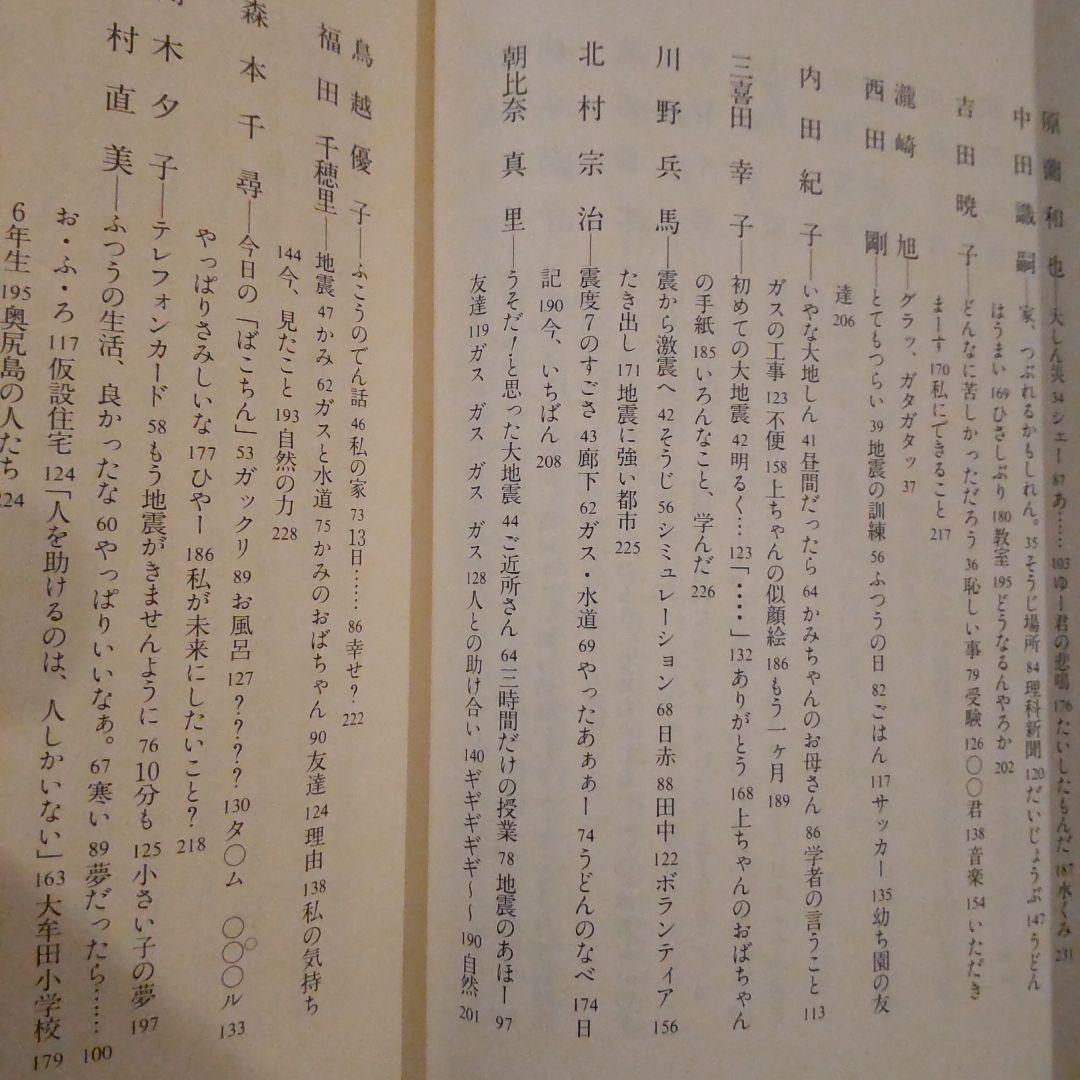 原 和也――大しん災 34 シェー 87 あ…… 103 ゆー君の悲鳴 176 たいしたもんだ 187 水くみ 231
中田識嗣 家、つぶれるかもしれん。 35 そうじ場所 84 理科新聞 120 だいじょうぶ 147 うどん
はうまい 169 ひさしぶり 180 教室 195 どうなるんやろか 202
吉田暁子――どんなに苦しかっただろう 36 恥しい事 79 受験 126 〇〇君 138 音楽 154 いただき
まーす 170 私にできること 217
瀧崎 旭――グラッ、ガタガタッ 37
西田 剛――とてもつらい 39 地震の訓練 56 ふつうの日 82 ごはん 117 サッカー 135 幼ち園の友
達 206
内田紀子――いやな大地しん 41 昼間だったら 64 かみちゃんのお母さん 86 学者の言うこと 113
ガスの工事 123 不便 158 上ちゃんの似顔絵 186 もう一ヶ月 189
三喜田幸子――初めての大地震 42 明るく… 123 「・・・・」 132 ありがとう 168 上ちゃんのおばちゃん
の手紙 185 いろんなこと、学んだ 226
川野兵馬――震から激震へ 42 そうじ 56 シミュレーション 68 日赤 88 田中 122 ボランティア 156
たき出し 171 地震に強い都市 225
北村宗治――震度7のすごさ 43 廊下 62 ガス・水道 69 やったあぁぁー 74 うどんのなべ 174 日
記 190 今、いちばん 208
朝比奈真里――うそだ!と思った大地震 44 ご近所さん 64 三時間だけの授業 78 地震のあほー 97
友達 119 ガス ガス ガス ガス 128 人との助け合い 140 ギギギギギ〜〜 190 自然 201
鳥越優子――ふこうのでん話 46 私の家 73 13日…… 86 幸せ? 222
福田千穂里――地震 47 かみ 62 ガスと水道 75 かみのおばちゃん 90 友達 124 理由 138 私の気持ち
144 今、見たこと 193 自然の力 228
森本千尋――今日の「ばこちん」 53 ガックリ 89 お風呂 127 ???? 130 タ〇ム 〇〇〇ル 133
やっぱりさみしいな 177 ひやー 186 私が未来にしたいこと? 218
木夕子――テレフォンカード 58 もう地震がきませんように 76 10分も 125 小さい子の夢 197
村直美――ふつうの生活、良かったな 60 やっぱりいいなぁ。 67 寒い 89 夢だったら…… 100
お・ふ・ろ 117 仮設住宅 124 「人を助けるのは、人しかいない」 163 大牟田小学校 179
6年生 195 奥尻島の人たち 224